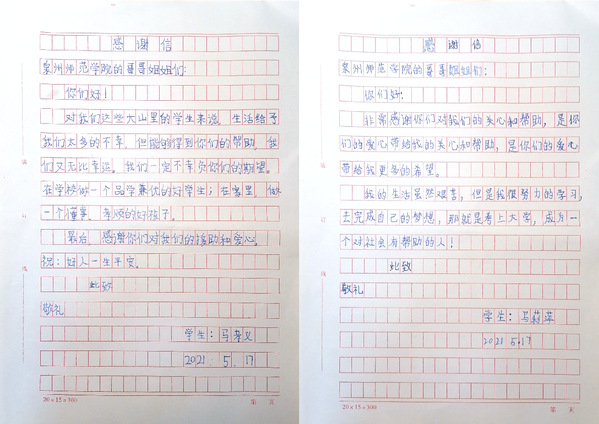 感谢信
泉州师范学院的哥哥姐姐们:
你们好!
对我们这些大山里的学生来说,生活给予
我们太多的不幸,但能够得到你们的帮助,我
们又无比幸运。我们一定不辜负你们的期望。
在学校做一个品学兼优的好学生;在家里,做
一个懂事、孝顺的好孩子。
最后,感谢你们对我们的援助和爱心。
祝:好人一生平安。
此致
敬礼
学生:马
2021 5.17
20×15=300
第 页
感谢信
泉州师范学院的哥哥姐姐们:
你们好:
非常感谢你们对我们的关心和帮助,是你
们的爱心带给我的关心和帮助,是你们的爱心
带给我更多的希望。
我的生活虽然艰苦,但是我很努力的学习,
去完成自己的梦想,那就是考上大学,成为一
个对社会有帮助的人!
此致
敬礼
学生:马
2021 5.17
20×15=300
第 页